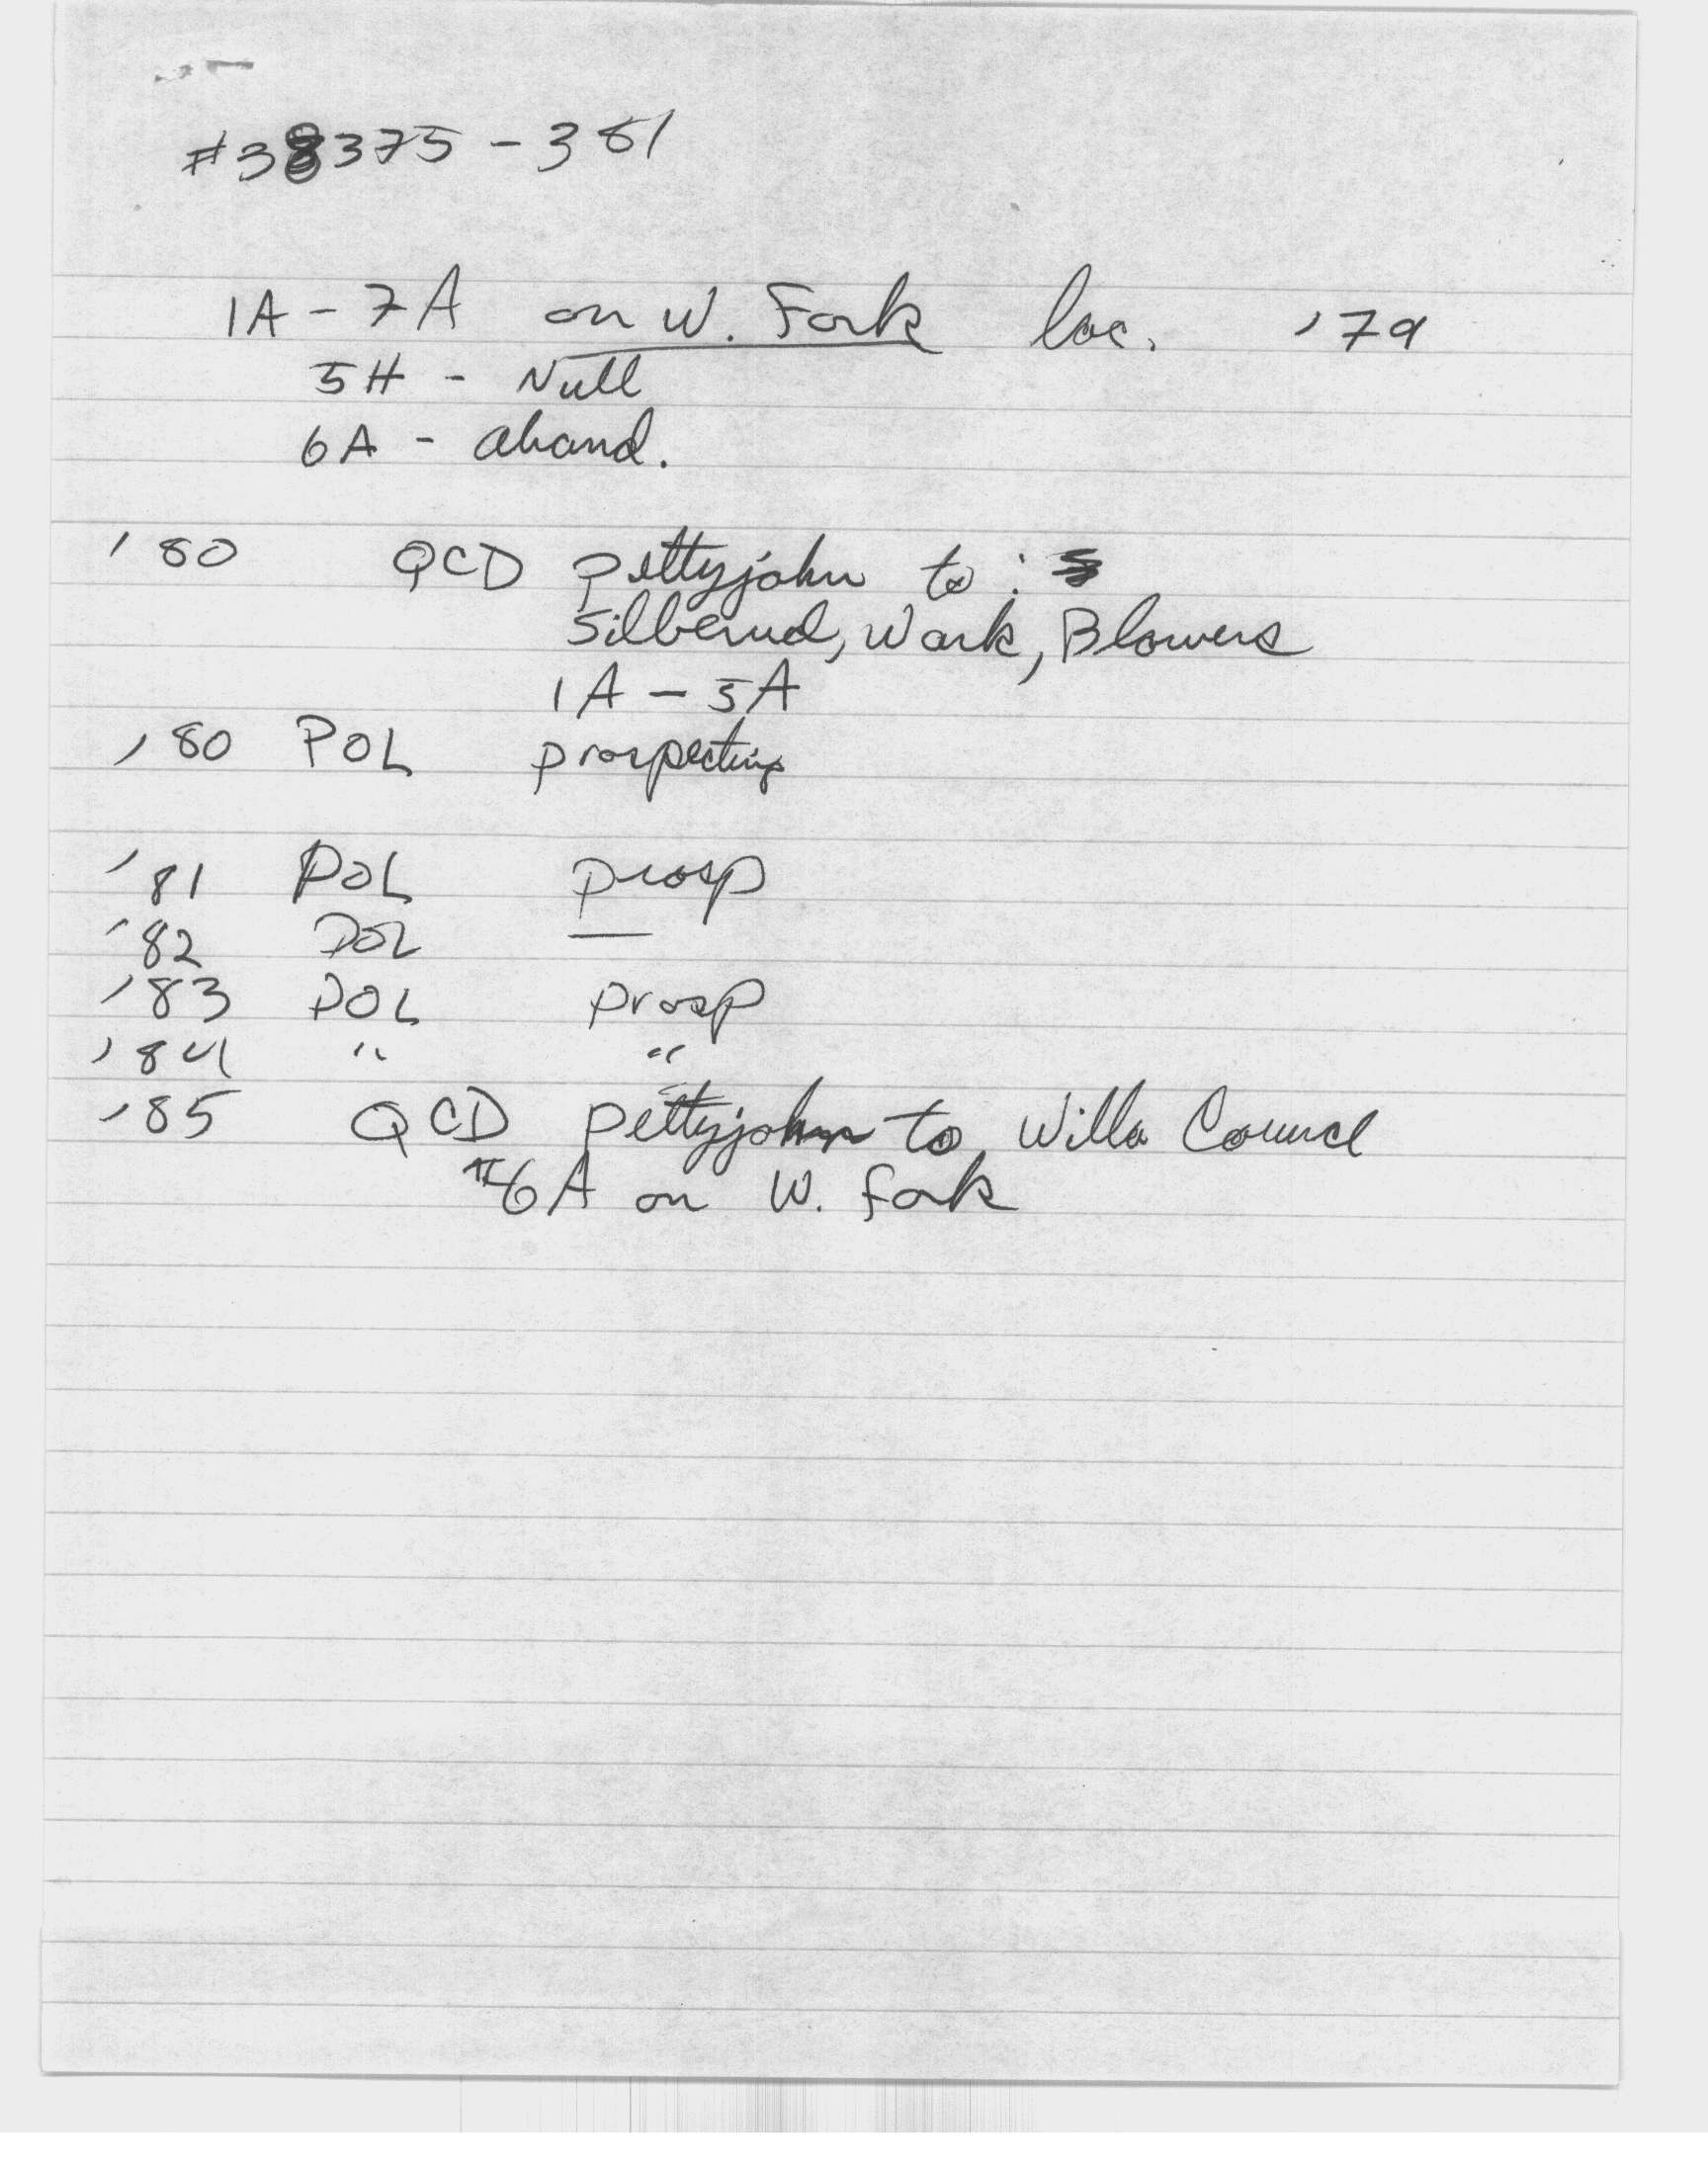 #38375 - 381
1A - 7A on W. Fork loc. '79
5H - Null
6A - aband.
'80 QCD Pettyjohn to:
Silberud, Wark, Blowers
1A - 5A
'80 POL prospecting
'81 POL prosp
'82 POL —
'83 POL prosp
'84 " "
'85 QCD Pettyjohn to Willa Councl
#6A on W. Fork